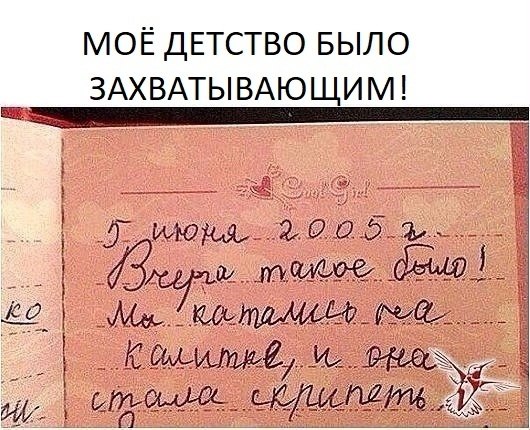 МОЁ ДЕТСТВО БЫЛО
ЗАХВАТЫВАЮЩИМ!
Cool Girl
5 июня 2005 г.
Вчера такое было!
ко Мы катались на
калитке, и она
стала скрипеть